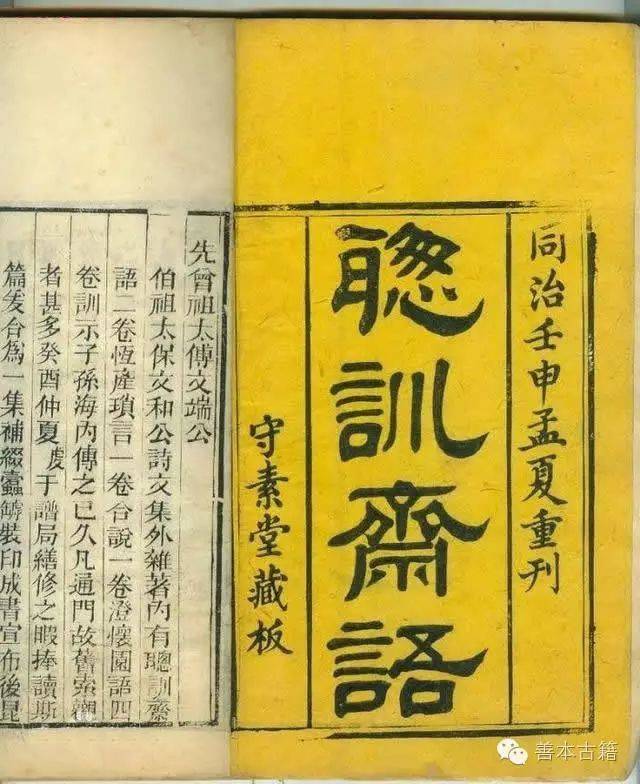 同治壬申孟夏重刊
聰訓齋語
守素堂藏板
先曾祖太傅文端公
伯祖太保文和公詩文集外雜著內有聰訓齋
語二卷恆產瑣言一卷合說一卷澄懷園語四
卷訓示子孫海內傳之已久凡通門故舊索觀
者甚多癸酉仲夏虔于譜局繕修之暇捧讀斯
篇爰合為一集補綴蠹蝕裝印成書宣布後昆
善本古籍